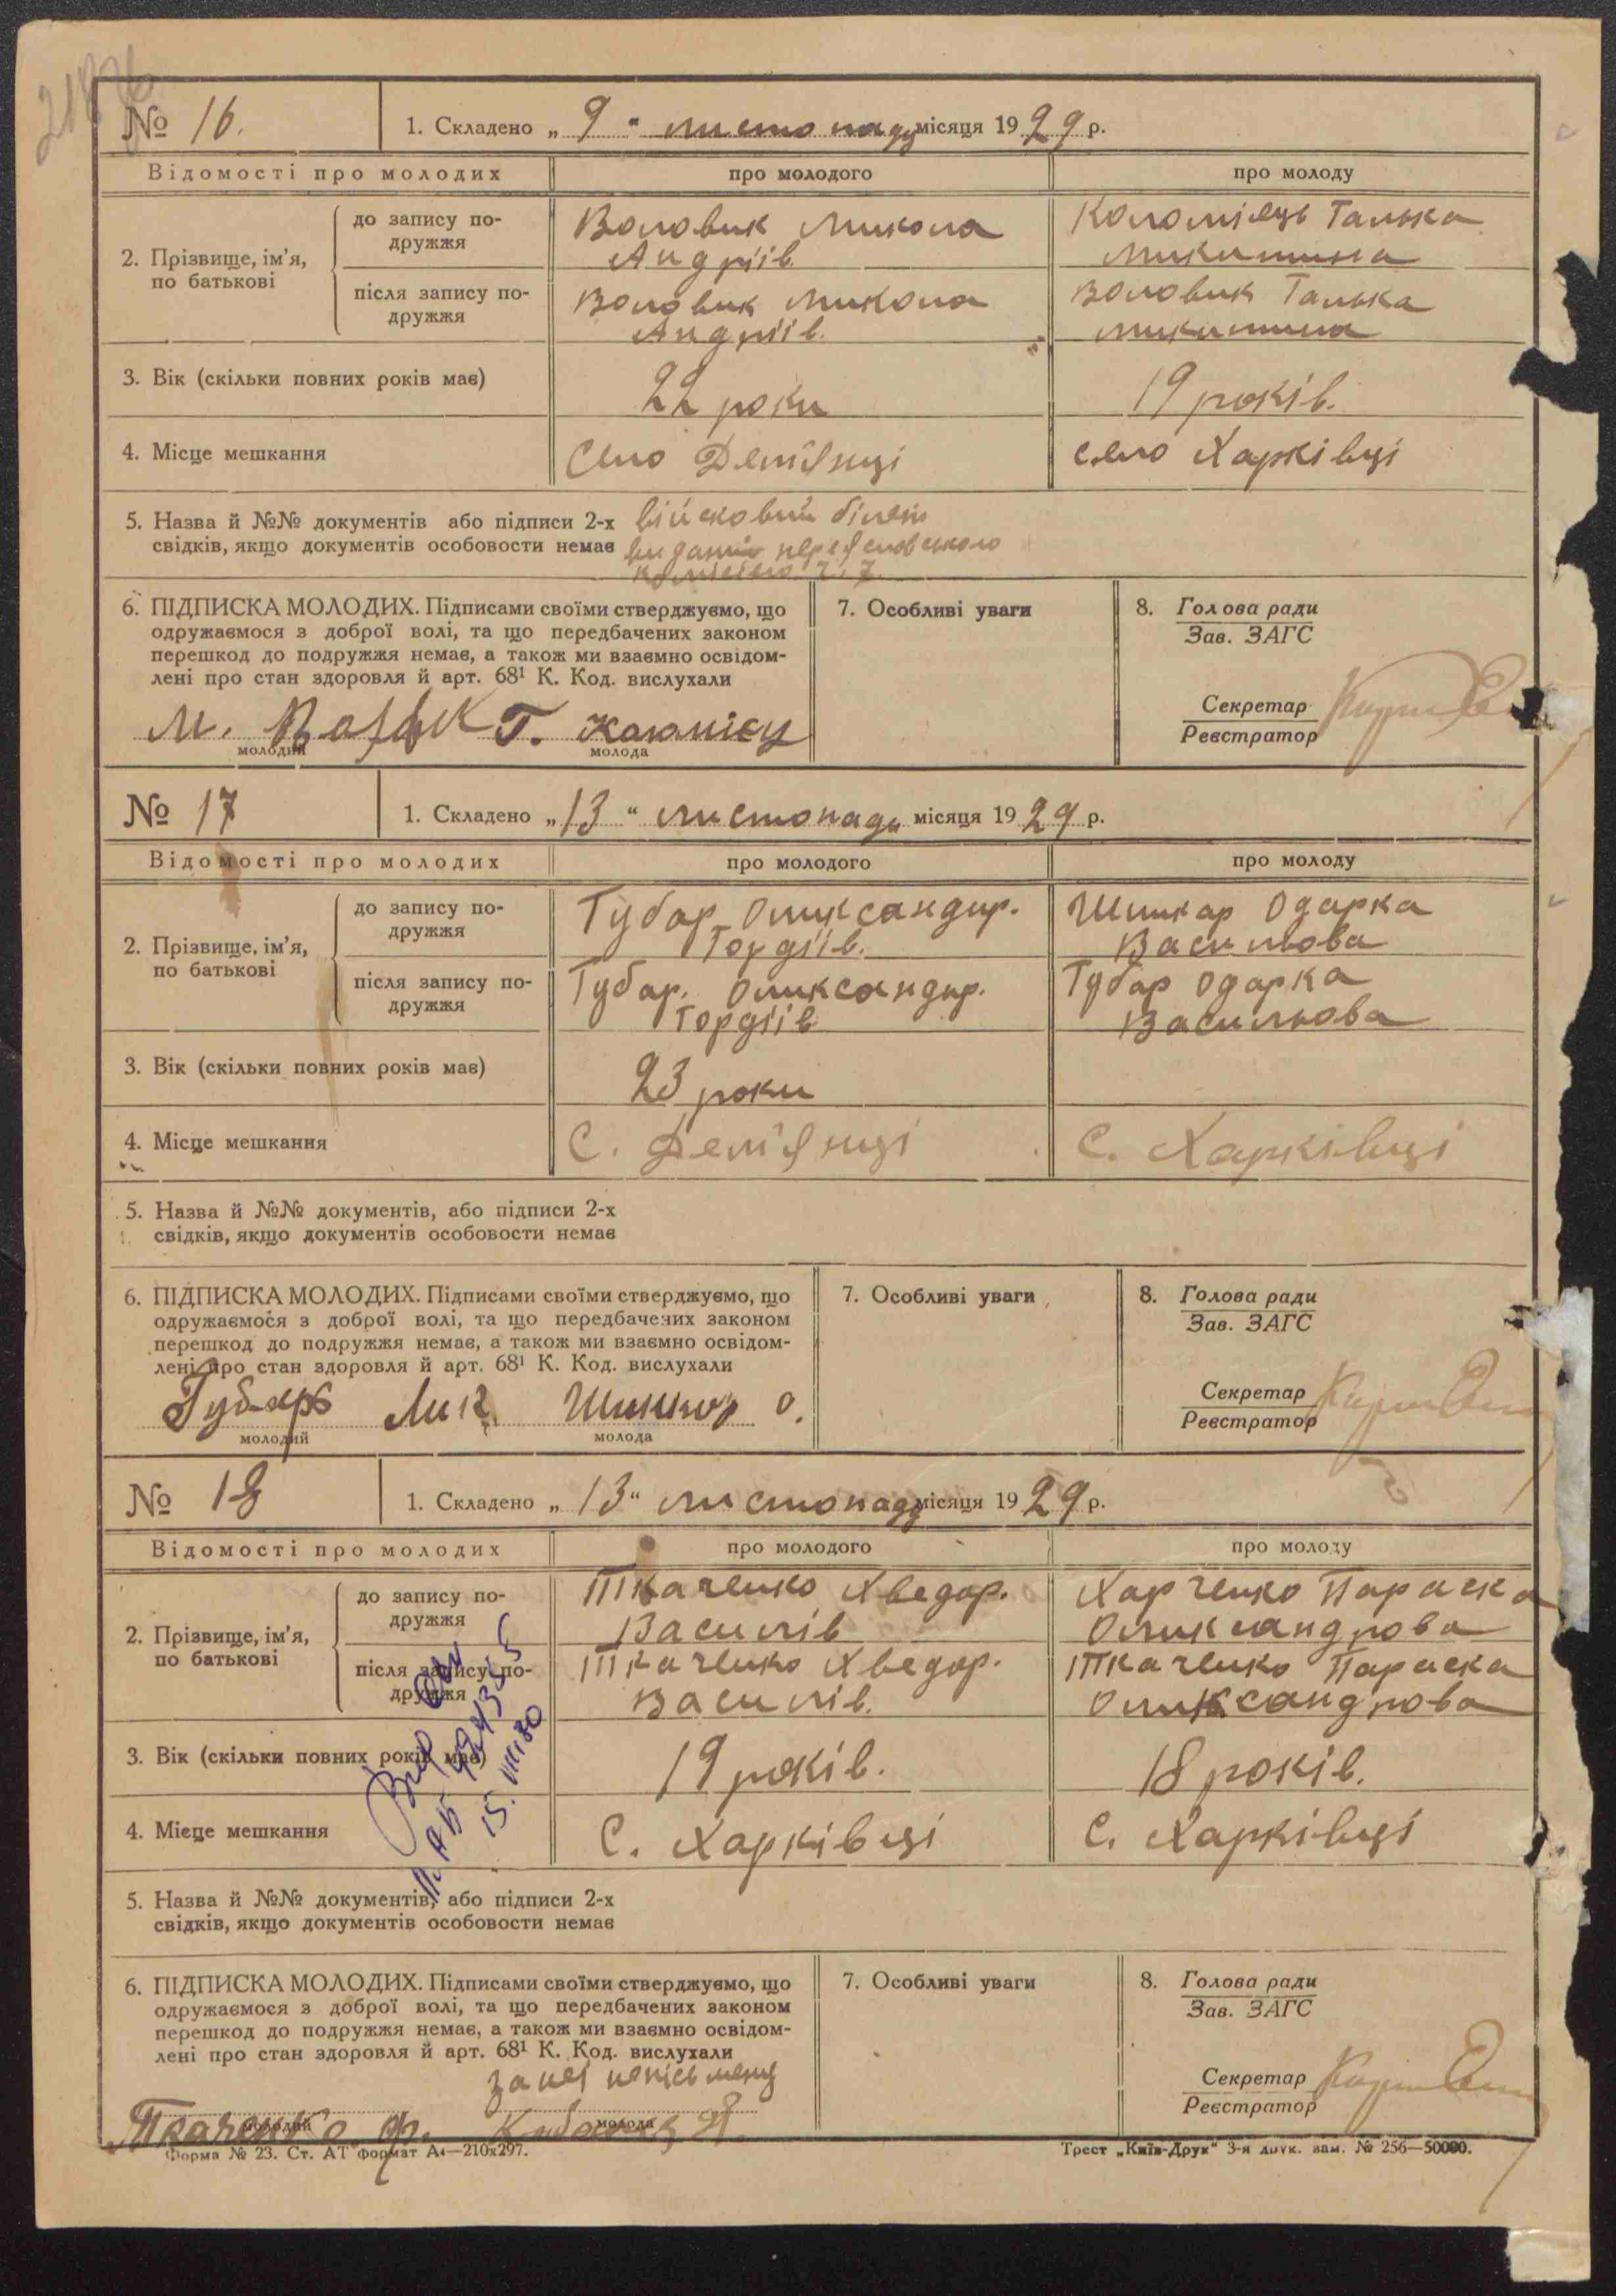 № 16. 1. Складено „ 9 “ листопаду місяця 1929 р.
Відомості про молодих про молодого про молоду
2. Прізвище, ім'я, по батькові
до запису по-
дружжя
Воловик Микола
Андріїв
Коломієць Галька
Микитина
після запису по-
дружжя
Воловик Микола
Андріїв.
Воловик Галька
Микитина
3. Вік (скільки повних років має) 22 роки 19 років.
4. Місце мешкання Село Дем'янці село Харківці
5. Назва й №№ документів або підписи 2-х
свідків, якщо документів особовости немає
військовий білет
виданий
ч. 7.
6. ПІДПИСКА МОЛОДИХ. Підписами своїми стверджуємо, що
одружаємося з доброї волі, та що передбачених законом
перешкод до подружжя немає, а також ми взаємно освідом-
лені про стан здоровля й арт. 68¹ К. Код. вислухали
М. Г.
молодий молода
7. Особливі уваги
8. Голова ради
Зав. ЗАГС
Секретар
Реєстратор
№ 17 1. Складено „13“ листопаду місяця 1929 р.
Відомості про молодих про молодого про молоду
2. Прізвище, ім'я,
по батькові
до запису по-
дружжя
Губар Олександр.
Гордіїв.
Шинкар Одарка
Васильова
після запису по-
дружжя
Губар. Олександр.
Гордіїв
Губар Одарка
Васильова
3. Вік (скільки повних років має) 23 роки
4. Місце мешкання С. Дем'янці С. Харківці
5. Назва й №№ документів, або підписи 2-х
свідків, якщо документів особовости немає
6. ПІДПИСКА МОЛОДИХ. Підписами своїми стверджуємо, що
одружаємося з доброї волі, та що передбачених законом
перешкод до подружжя немає, а також ми взаємно освідом-
лені про стан здоровля й арт. 68¹ К. Код. вислухали
Губарь Шинкар О.
молодий молода
7. Особливі уваги
8. Голова ради
Зав. ЗАГС
Секретар
Реєстратор
№ 18 1. Складено „ 13“ листопаду місяця 1929 р.
Відомості про молодих про молодого про молоду
2. Прізвище, ім'я,
по батькові
до запису по-
дружжя
Ткаченко Хведор.
Василів
Харченко Параска
Олександрова
після запису по-
дружжя
Ткаченко Хведор.
Василів.
Ткаченко Параска
Олександрова
3. Вік (скільки повних років має) 19 років. 18 років.
4. Місце мешкання С. Харківці С. Харківці
5. Назва й №№ документів, або підписи 2-х
свідків, якщо документів особовости немає
6. ПІДПИСКА МОЛОДИХ. Підписами своїми стверджуємо, що
одружаємося з доброї волі, та що передбачених законом
перешкод до подружжя немає, а також ми взаємно освідом-
лені про стан здоровля й арт. 68¹ К. Код. вислухали
за неї
Ткаченко Ф.
молодий молода
7. Особливі уваги
8. Голова ради
Зав. ЗАГС
Секретар
Реєстратор
Форма № 23. Ст. АТ формат А4—210х297. Трест „Київ-Друк“ 3-я друк. зам. № 256—50000.